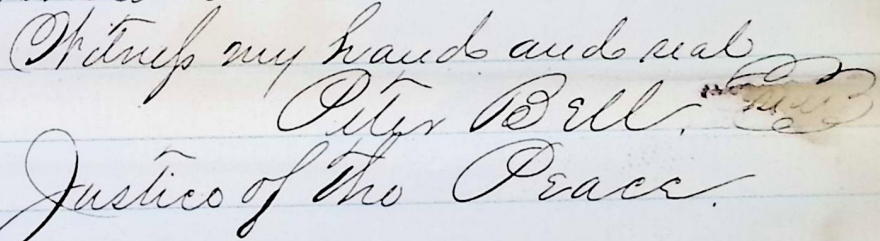 Witness my hand and seal
Peter Bell. Seal
Justice of the Peace.